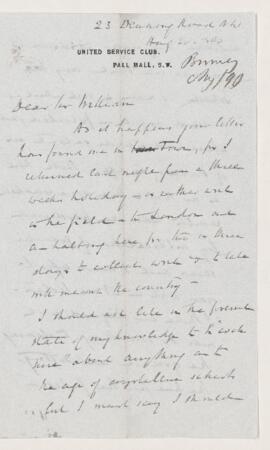 23 Denning Road N.W.
Aug
UNITED SERVICE CLUB,
PALL MALL, S.W.
Bonney
Aug 1890
Dear Sir William
As it happens your letter
has found me in town, for I
returned last night from a three
weeks holiday - or rather work
in the field - to London and
halting here for two or three
days to collect work to take
with me into the country -
I should not like in the present
state of my knowledge to be cock
sure about anything as to
the age of crystalline schists
but I must say I should